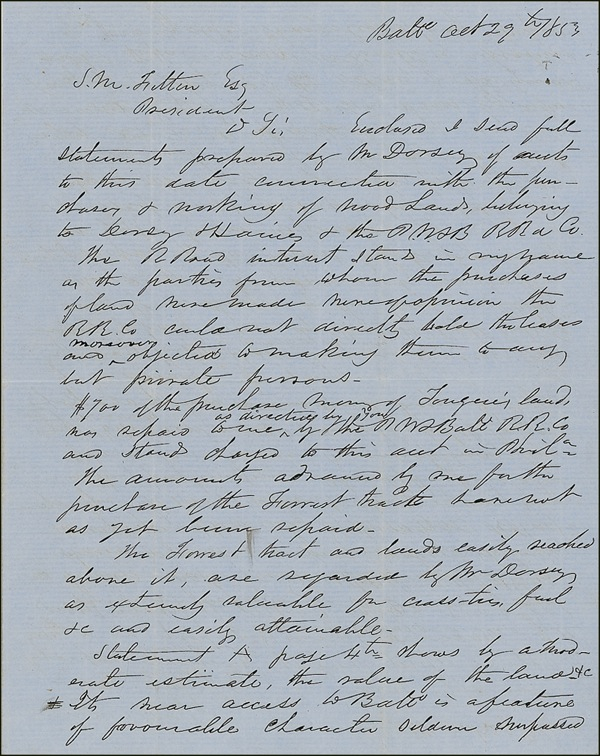 Balto Oct 29th 1853
S. M. Felton Esq
President
D Sir Enclosed I send full
statements prepared by Mr Dorsey of accts
to this date connected with the pur-
chases & working of Wood Lands, belonging
to Dorsey & Haines & the P. W & B R R d Co.
The R Road interest stands in my name
as the parties from whom the purchases
of land were made were of opinion the
R R. Co could not directly hold the leases
and moreover objected to making them to any
but private persons -
$700 of the purchase money of lands
was repaid to me, as directed by you by the P W & Balt R. R. Co
and stands charged to this acct in Phila
The amounts advanced by me for the
purchase of the Forrest tracts have not
as yet been repaid -
The Forrest tract and lands easily reached
above it, are regarded by Mr Dorsey,
as extremely valuable for cross-ties, fuel
&c and easily attainable -
Statement A page 4th shows by a mod-
erate estimate, the value of the land &c
Its near access to Balto is a feature
of favourable character seldom surpassed